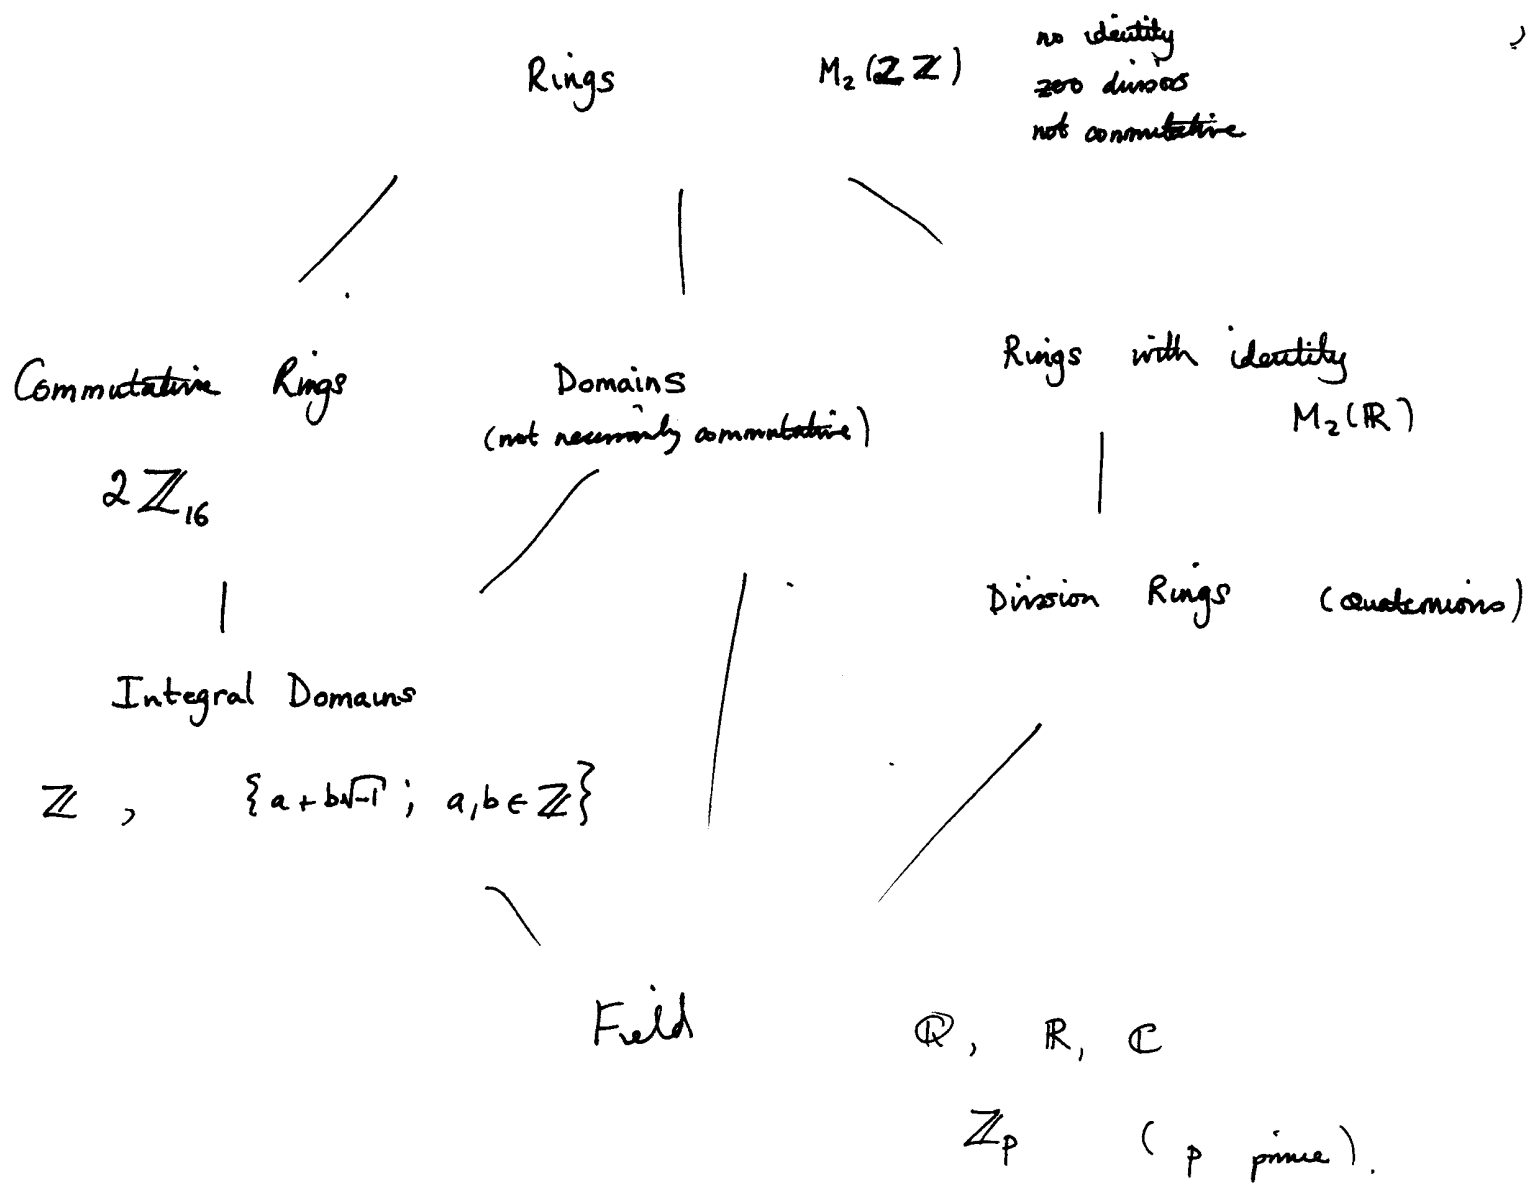 Rings M₂(2ℤ) no identity
zero divisors
not commutative
Commutative Rings
2ℤ₁₆
Domains
(not necessarily commutative)
Rings with identity
M₂(ℝ)
Division Rings (Quaternions)
Integral Domains
ℤ , {a + b√-1 ; a,b ∈ ℤ}
Field
ℚ, ℝ, ℂ
ℤₚ (p prime).